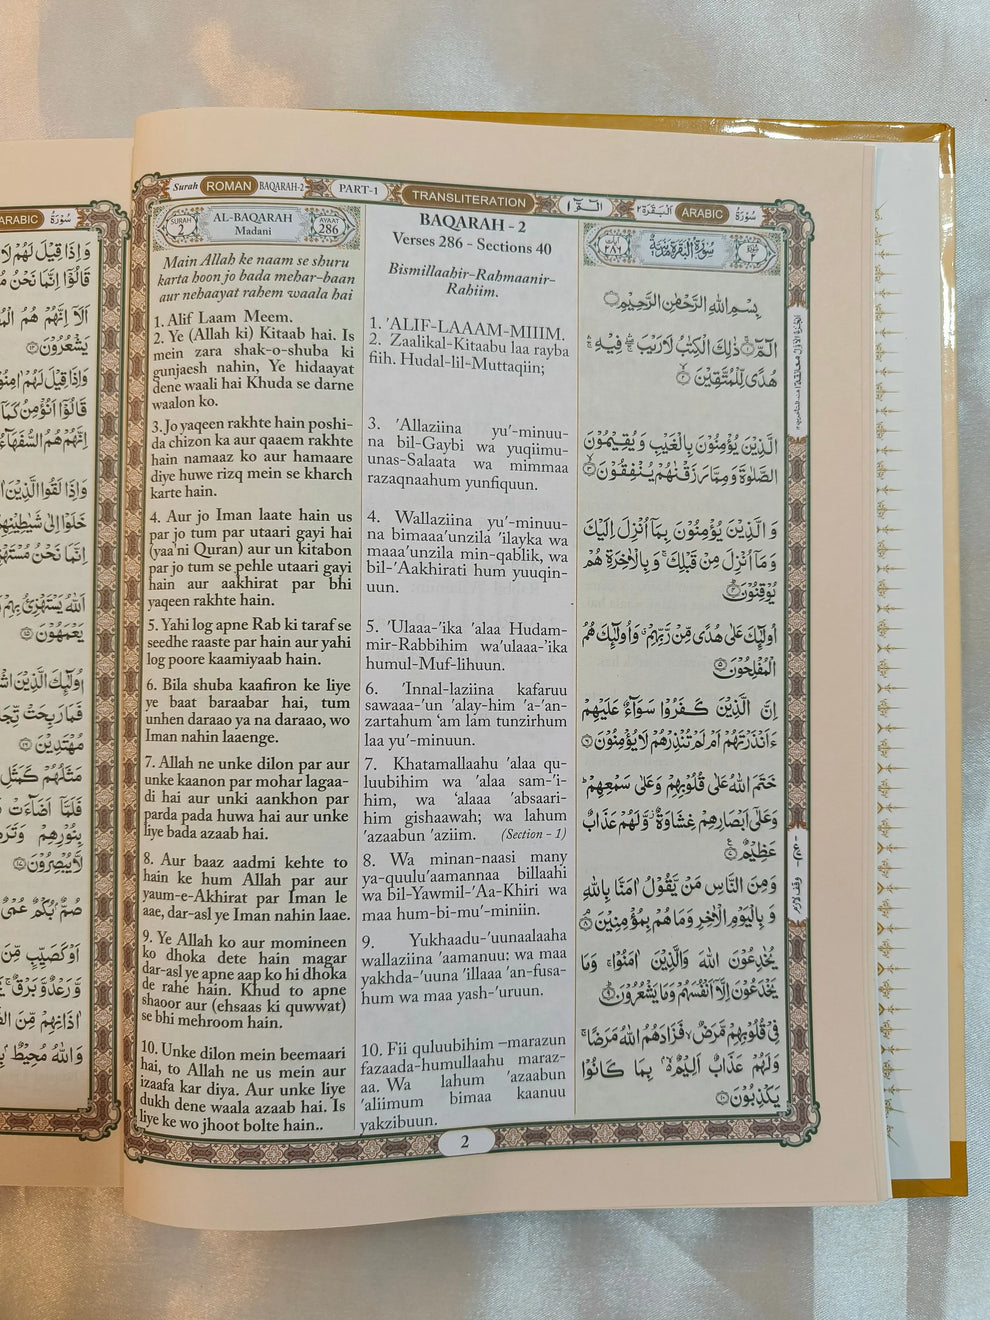 Surah ROMAN BAQARAH-2 PART-1 TRANSLITERATION الٓمّٓ ١ اَلْبَقَرَة ٢ ARABIC سُوْرَةُ
SURAH 2
AL-BAQARAH
Madani
AYAAT 286
Main Allah ke naam se shuru
karta hoon jo bada mehar-baan
aur nehaayat rahem waala hai
1. Alif Laam Meem.
2. Ye (Allah ki) Kitaab hai. Is
mein zara shak-o-shuba ki
gunjaesh nahin, Ye hidaayat
dene waali hai Khuda se darne
waalon ko.
3.Jo yaqeen rakhte hain poshi-
da chizon ka aur qaaem rakhte
hain namaaz ko aur hamaare
diye huwe rizq mein se kharch
karte hain.
4. Aur jo Iman laate hain us
par jo tum par utaari gayi hai
(yaa'ni Quran) aur un kitabon
par jo tum se pehle utaari gayi
hain aur aakhirat par bhi
yaqeen rakhte hain.
5. Yahi log apne Rab ki taraf se
seedhe raaste par hain aur yahi
log poore kaamiyaab hain.
6. Bila shuba kaafiron ke liye
ye baat baraabar hai, tum
unhen daraao ya na daraao, wo
Iman nahin laaenge.
7. Allah ne unke dilon par aur
unke kaanon par mohar lagaa-
di hai aur unki aankhon par
parda pada huwa hai aur unke
liye bada azaab hai.
8. Aur baaz aadmi kehte to
hain ke hum Allah par aur
yaum-e-Akhirat par Iman le
aae, dar-asl ye Iman nahin laae.
9. Ye Allah ko aur momineen
ko dhoka dete hain magar
dar-asl ye apne aap ko hi dhoka
de rahe hain. Khud to apne
shaoor aur (ehsaas ki quwwat)
se bhi mehroom hain.
10. Unke dilon mein beemaari
hai, to Allah ne us mein aur
izaafa kar diya. Aur unke liye
dukh dene waala azaab hai. Is
liye ke wo jhoot bolte hain..
BAQARAH - 2
Verses 286 - Sections 40
Bismillaahir-Rahmaanir-
Rahiim.
1. 'ALIF-LAAAM-MIIIM.
2. Zaalikal-Kitaabu laa rayba
fiih. Hudal-lil-Muttaqiin;
3. 'Allaziina yu'-minuu-
na bil-Gaybi wa yuqiimu-
unas-Salaata wa mimmaa
razaqnaahum yunfiquun.
4. Wallaziina yu'-minuu-
na bimaaa'unzila 'ilayka wa
maaa'unzila min-qablik, wa
bil-'Aakhirati hum yuuqin-
uun.
5. 'Ulaaa-'ika 'alaa Hudam-
mir-Rabbihim wa'ulaaa-'ika
humul-Muf-lihuun.
6. 'Innal-laziina kafaruu
sawaaa-'un 'alay-him 'a-'an-
zartahum 'am lam tunzirhum
laa yu'-minuun.
7. Khatamallaahu 'alaa qu-
luubihim wa 'alaa sam-'i-
him, wa 'alaaa 'absaari-
him gishaawah; wa lahum
'azaabun 'aziim. (Section - 1)
8. Wa minan-naasi many
ya-quulu'aamannaa billaahi
wa bil-Yawmil-'Aa-Khiri wa
maa hum-bi-mu'-miniin.
9. Yukhaadu-'uunaalaaha
wallaziina 'aamanuu: wa maa
yakhda-'uuna 'illaaa 'an-fusa-
hum wa maa yash-'uruun.
10. Fii quluubihim –marazun
fazaada-humullaahu maraz-
aa. Wa lahum 'azaabun
'aliimum bimaa kaanuu
yakzibuun.
سُوْرَةُ الْبَقَرَةِ مَدَنِيَّةٌ
بِسْمِ اللهِ الرَّحْمٰنِ الرَّحِيْمِ
الٓمّٓ ۝١ ذٰلِكَ الْكِتٰبُ لَا رَيْبَ ۛ فِيْهِ ۛ
هُدًى لِّلْمُتَّقِيْنَ ۝٢
الَّذِيْنَ يُؤْمِنُوْنَ بِالْغَيْبِ وَ يُقِيْمُوْنَ
الصَّلٰوةَ وَ مِمَّا رَزَقْنٰهُمْ يُنْفِقُوْنَ ۝٣
وَ الَّذِيْنَ يُؤْمِنُوْنَ بِمَآ اُنْزِلَ اِلَيْكَ
وَ مَآ اُنْزِلَ مِنْ قَبْلِكَ ۚ وَ بِالْاٰخِرَةِ هُمْ
يُوْقِنُوْنَ ۝٤
اُولٰٓئِكَ عَلٰى هُدًى مِّنْ رَّبِّهِمْ ۗ وَ اُولٰٓئِكَ هُمُ
الْمُفْلِحُوْنَ ۝٥
اِنَّ الَّذِيْنَ كَفَرُوْا سَوَآءٌ عَلَيْهِمْ
ءَاَنْذَرْتَهُمْ اَمْ لَمْ تُنْذِرْهُمْ لَا يُؤْمِنُوْنَ ۝٦
خَتَمَ اللهُ عَلٰى قُلُوْبِهِمْ وَ عَلٰى سَمْعِهِمْ ؕ
وَ عَلٰٓى اَبْصَارِهِمْ غِشَاوَةٌ ؗ وَّ لَهُمْ عَذَابٌ
عَظِيْمٌ ۝٧
وَ مِنَ النَّاسِ مَنْ يَّقُوْلُ اٰمَنَّا بِاللهِ
وَ بِالْيَوْمِ الْاٰخِرِ وَ مَا هُمْ بِمُؤْمِنِيْنَ ۝٨
يُخٰدِعُوْنَ اللهَ وَ الَّذِيْنَ اٰمَنُوْا ۚ وَ مَا
يَخْدَعُوْنَ اِلَّآ اَنْفُسَهُمْ وَ مَا يَشْعُرُوْنَ ۝٩
فِيْ قُلُوْبِهِمْ مَّرَضٌ ۙ فَزَادَهُمُ اللهُ مَرَضًا ۚ
وَ لَهُمْ عَذَابٌ اَلِيْمٌۢ ۙ بِمَا كَانُوْا
يَكْذِبُوْنَ ۝١٠
2
ARABIC سُوْرَةُ
وَ اِذَا قِيْلَ لَهُمْ لَا
قَالُوْٓا اِنَّمَا نَحْنُ
اَلَآ اِنَّهُمْ هُمُ
يَشْعُرُوْنَ ۝١٢
وَ اِذَا قِيْلَ لَهُمْ اٰمِنُوْا
قَالُوْٓا اَنُؤْمِنُ كَمَآ
اِنَّهُمْ هُمُ السُّفَهَآءُ
وَ اِذَا لَقُوا الَّذِيْنَ
خَلَوْا اِلٰى شَيٰطِيْنِهِمْ
اِنَّمَا نَحْنُ
اَللهُ يَسْتَهْزِئُ بِهِمْ
يَعْمَهُوْنَ ۝١٥
اُولٰٓئِكَ الَّذِيْنَ
فَمَا رَبِحَتْ
مُهْتَدِيْنَ ۝١٦
مَثَلُهُمْ كَمَثَلِ
فَلَمَّآ اَضَآءَتْ
بِنُوْرِهِمْ
لَّا يُبْصِرُوْنَ ۝١٧
صُمٌّۢ بُكْمٌ عُمْيٌ
اَوْ كَصَيِّبٍ مِّنَ
وَّ رَعْدٌ وَّ بَرْقٌ ۚ
اٰذَانِهِمْ مِّنَ
وَ اللهُ مُحِيْطٌۢ